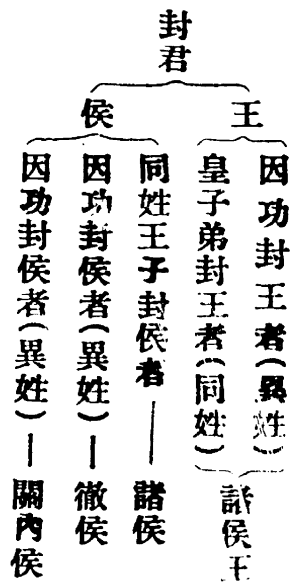 封君
王
侯
因功封王者(異姓)
皇子弟封王者(同姓)
諸侯王
同姓王子封侯者—諸侯
因功封侯者(異姓)—徹侯
因功封侯者(異姓)—關內侯